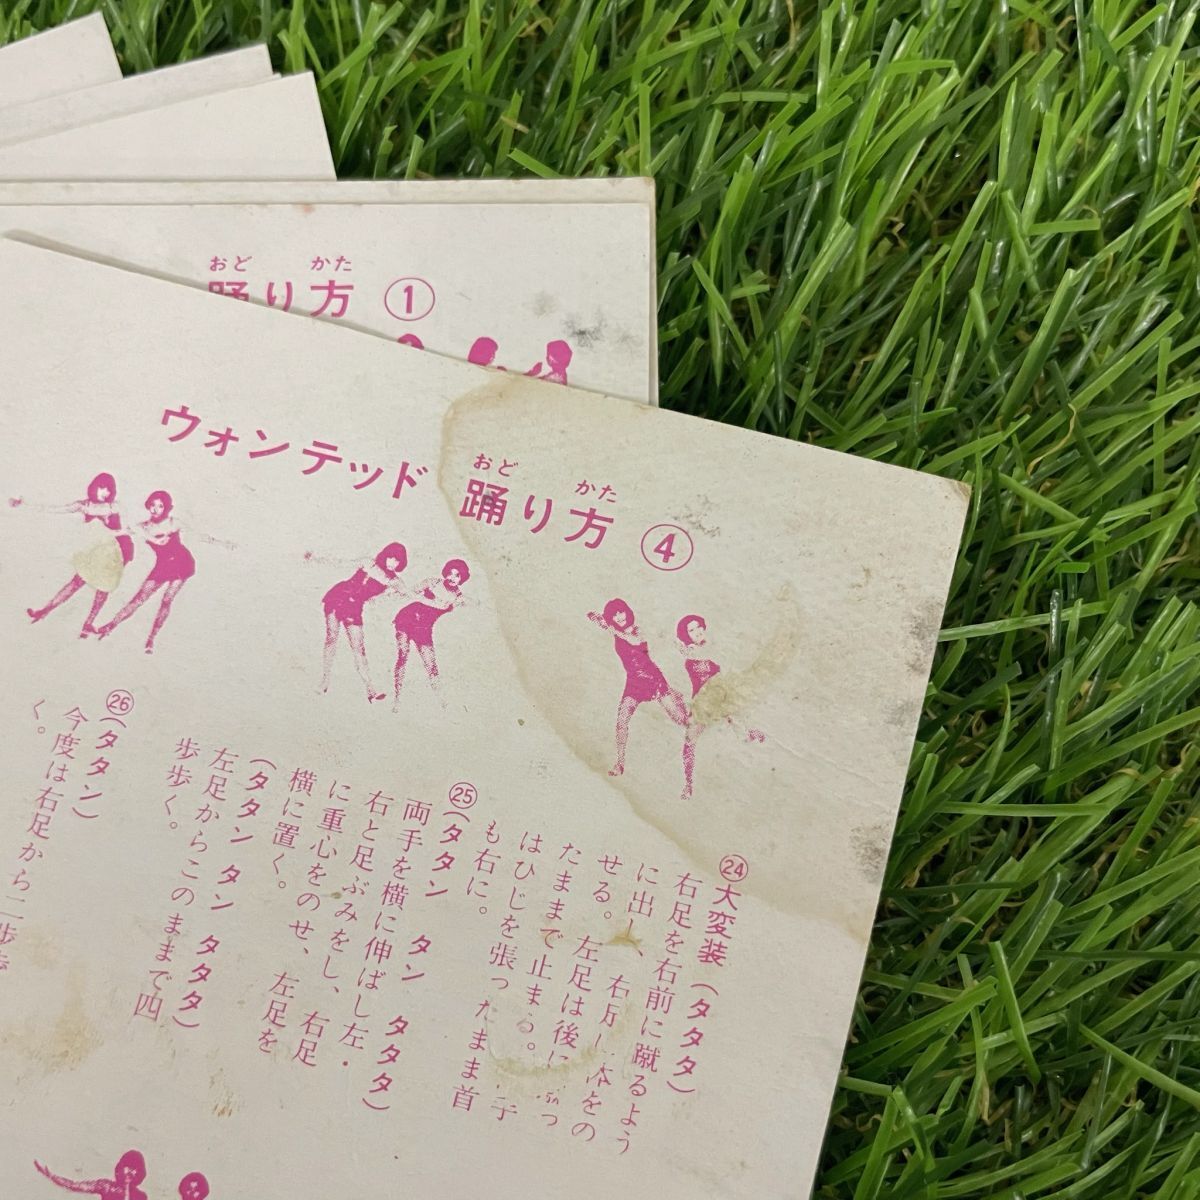 おど かた
踊り方 ①
ウォンテッド 踊り方 ④
おど かた
㉔大変装(タタタ)
右足を右前に蹴るよう
に出し、右足に体をの
せる。左足は後に
たままで止まる。
はひじを張ったまま首
も右に。
㉕(タタン タン タタタ)
両手を横に伸ばし左・
右と足ぶみをし、右足
に重心をのせ、左足を
横に置く。
(タタン タン タタタ)
左足からこのままで四
歩歩く。
㉖(タタン)
今度は右足から二歩歩
く。